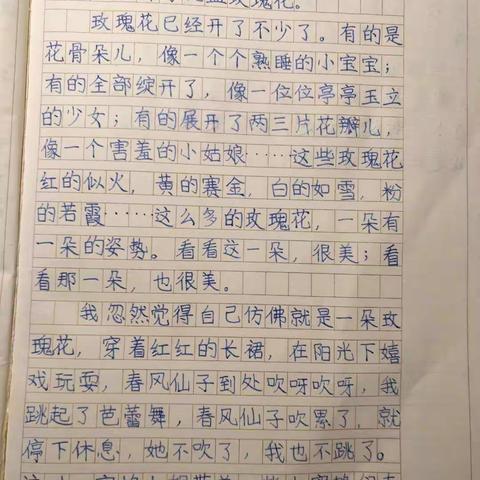 玫瑰花。
玫瑰花已经开了不少了。有的是
花骨朵儿，像一个个熟睡的小宝宝；
有的全部绽开了，像一位位亭亭玉立
的少女；有的展开了两三片花瓣儿，
像一个害羞的小姑娘……这些玫瑰花
红的似火，黄的赛金，白的如雪，粉
的若霞……这么多的玫瑰花，一朵有
一朵的姿势。看看这一朵，很美；看
看那一朵，也很美。
我忽然觉得自己仿佛就是一朵玫
瑰花，穿着红红的长裙，在阳光下嬉
戏玩耍，春风仙子到处吹呀吹呀，我
跳起了芭蕾舞，春风仙子吹累了，就
停下休息，她不吹了，我也不跳了。